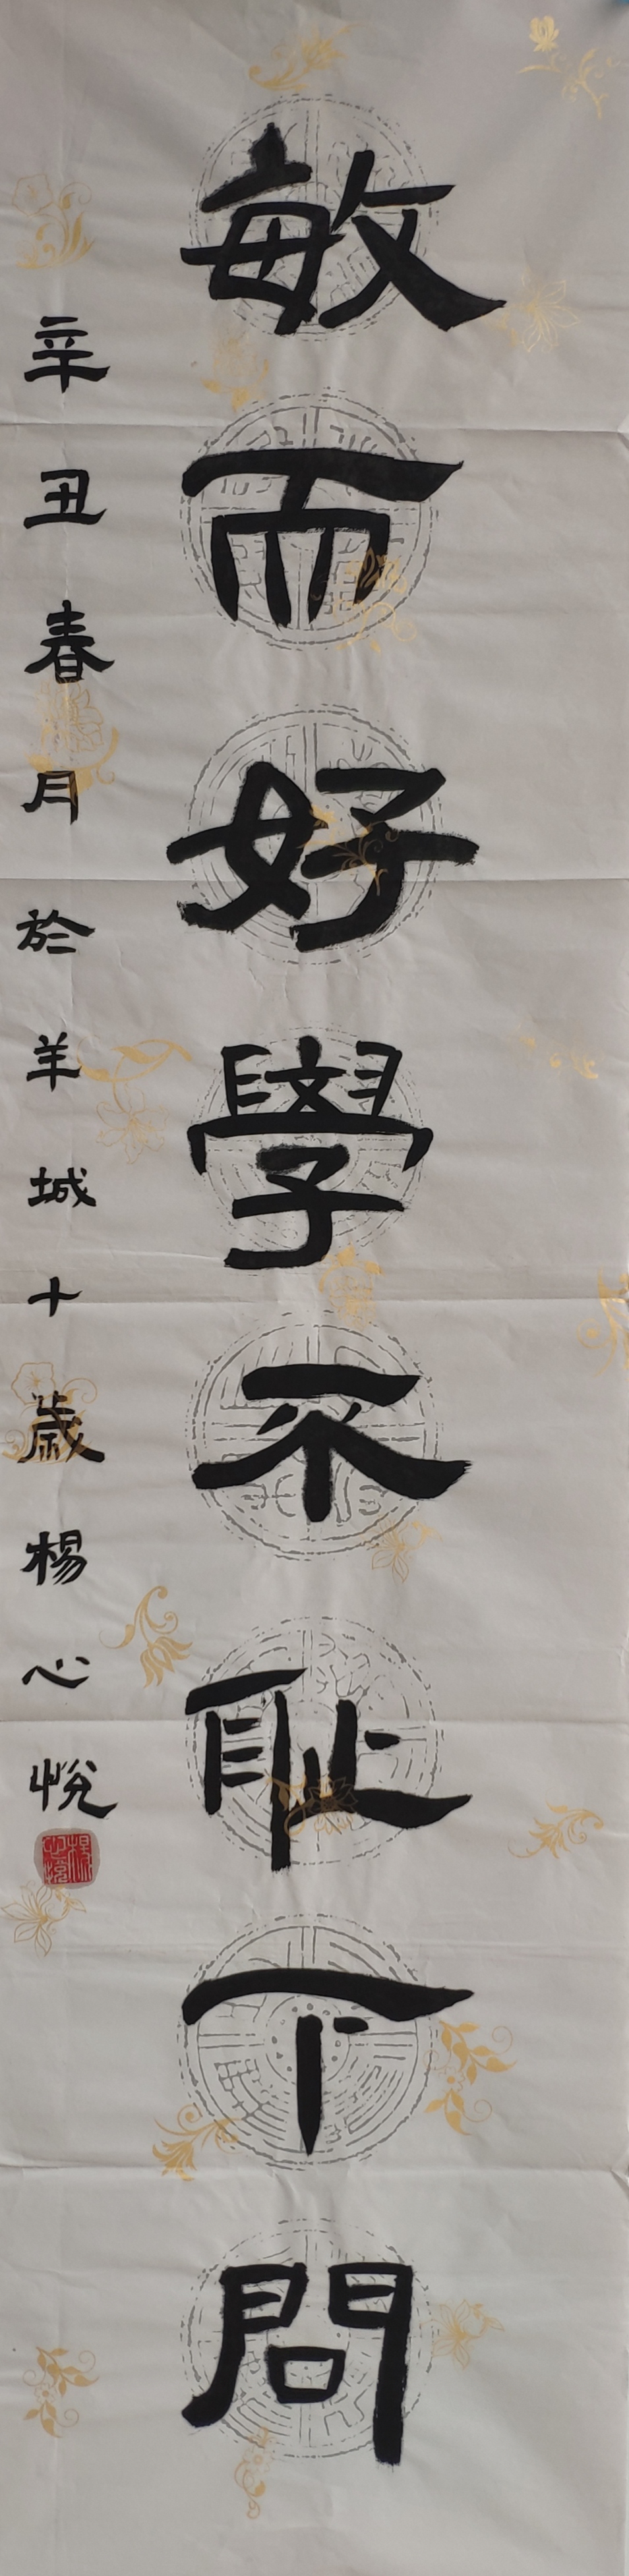 敏而好學不耻下問
辛丑春月於羊城十歲楊心悅
楊心悅